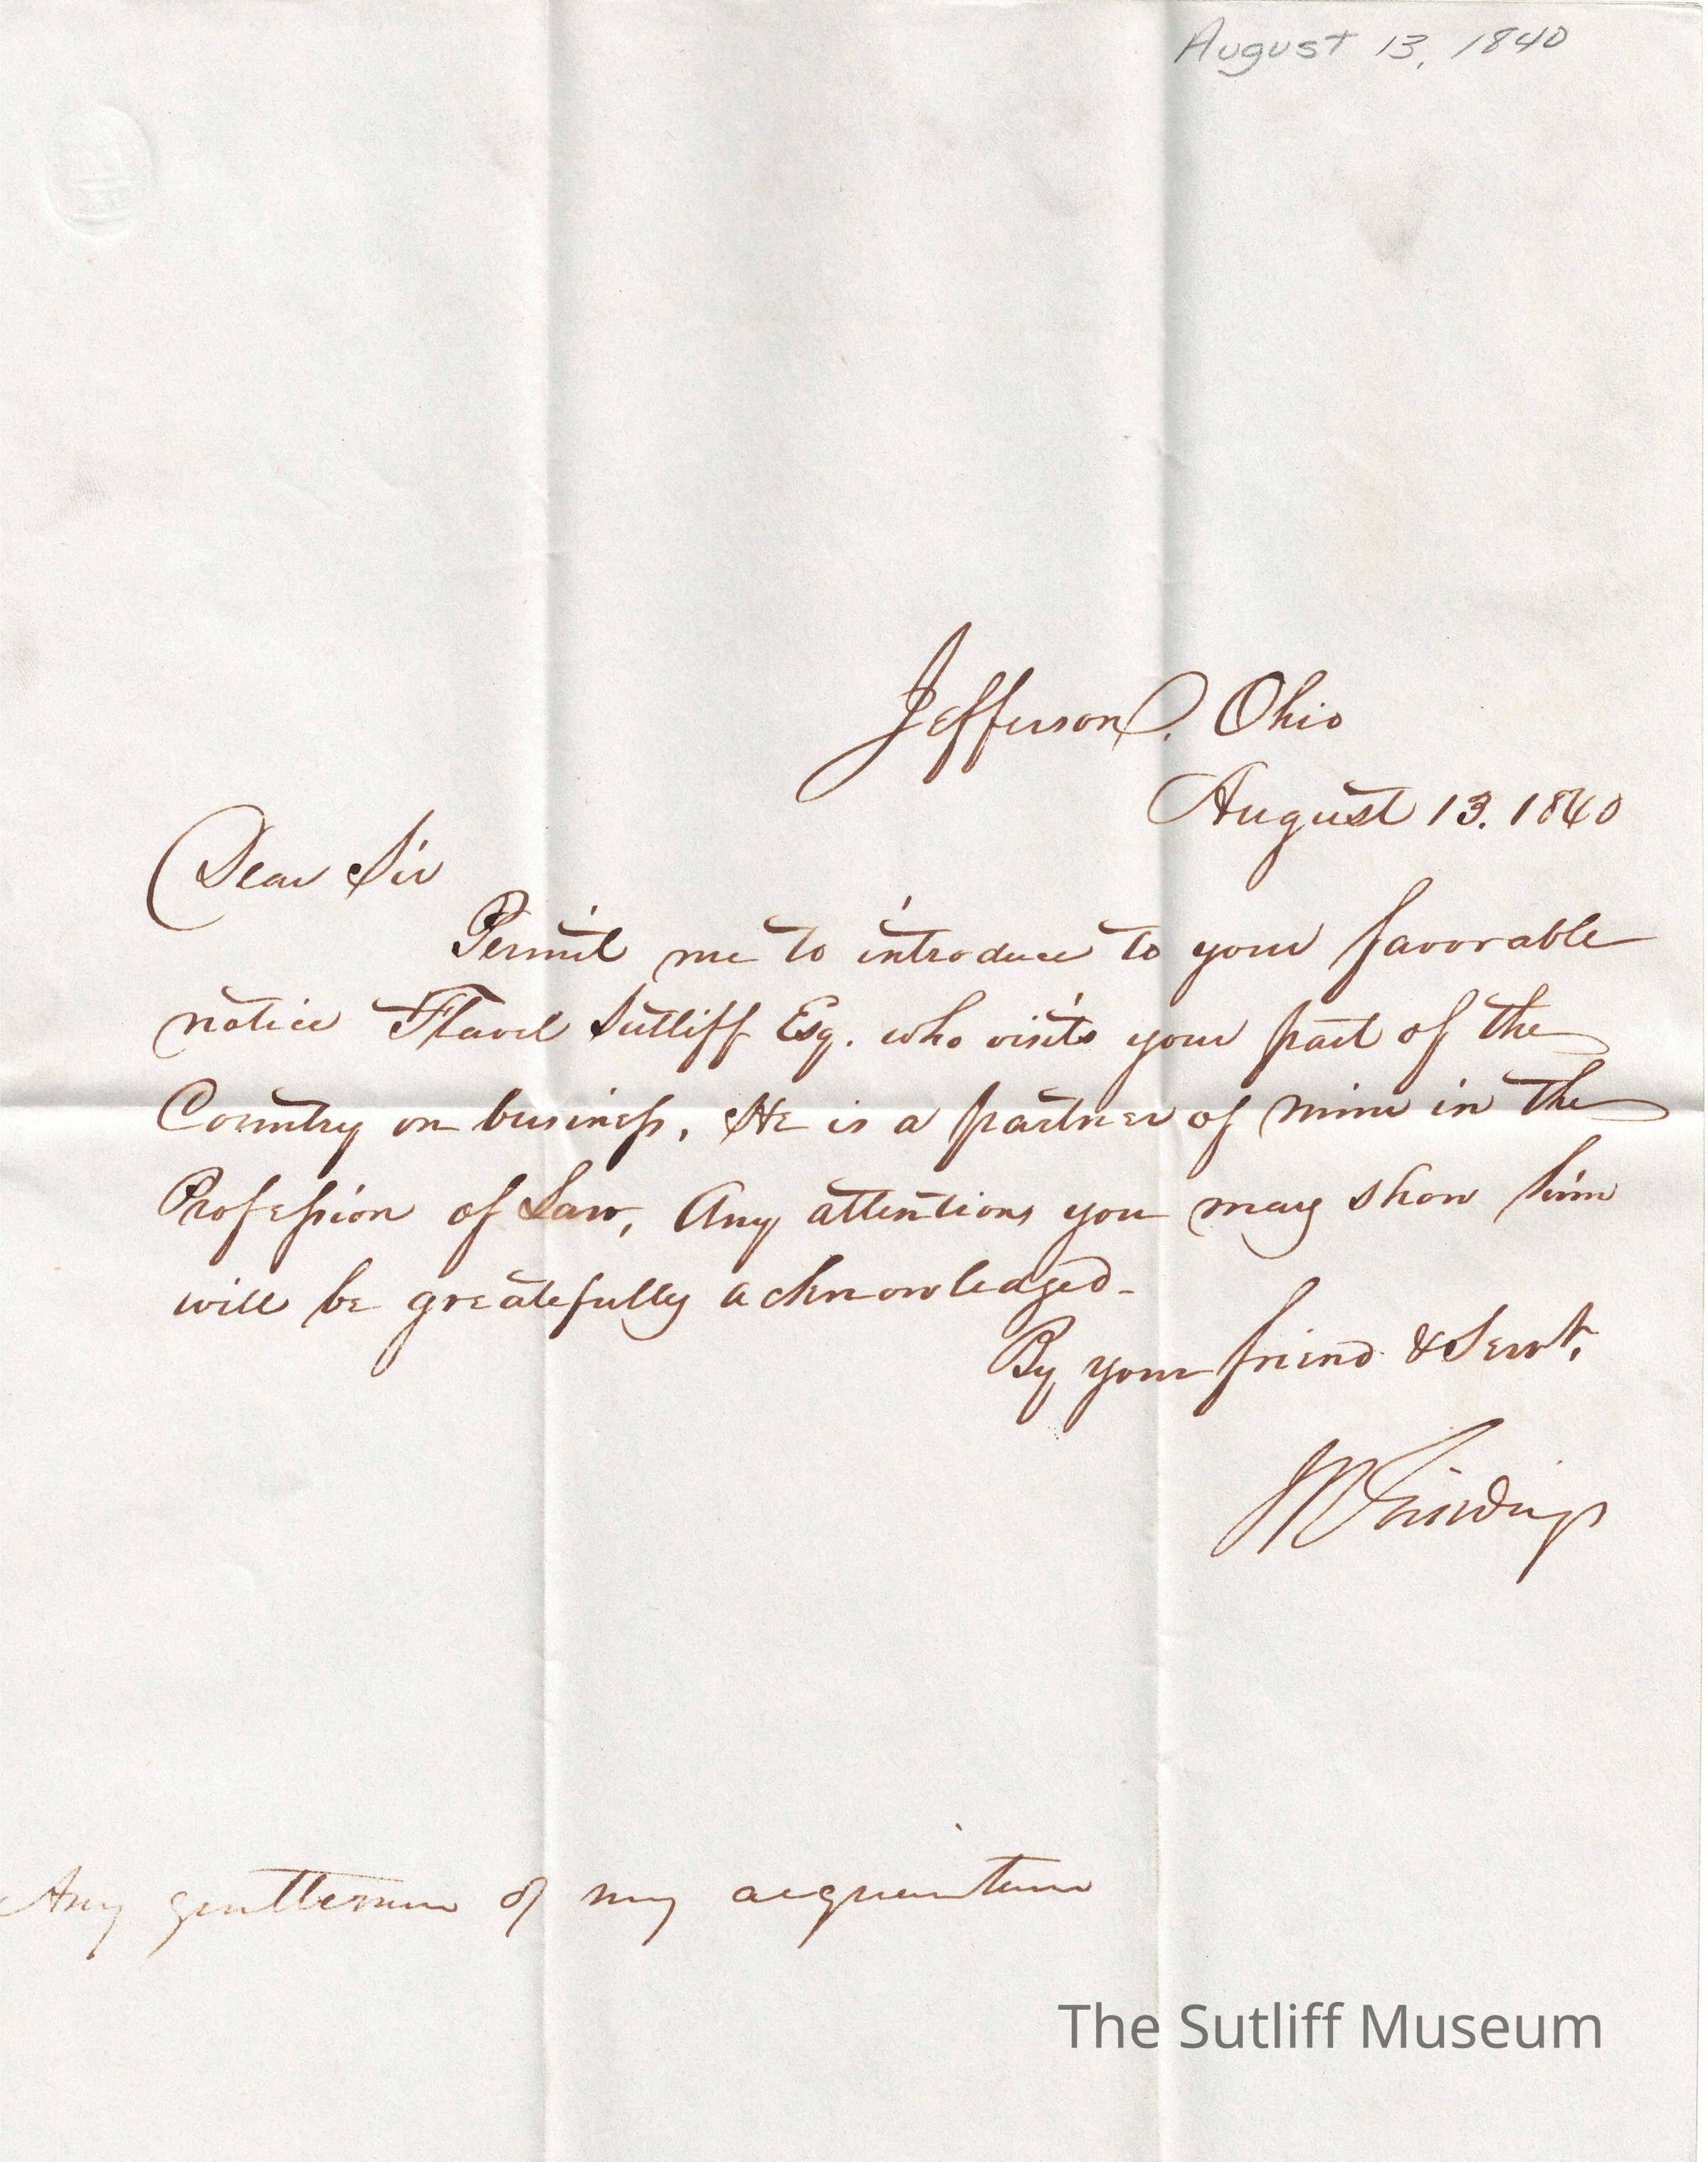 August 13, 1840
Jefferson. Ohio
August 13. 1840
Dear Sir
Permit me to introduce to your favorable
notice Flavel Sutliff Esq. who visits your part of the
Country on business, He is a partner of mine in the
Profession of Law, Any attentions you may show him
will be greatefully acknowledged-
By your friend & Servt,
JR Giddings
Any gentleman of my acquaintance
The Sutliff Museum